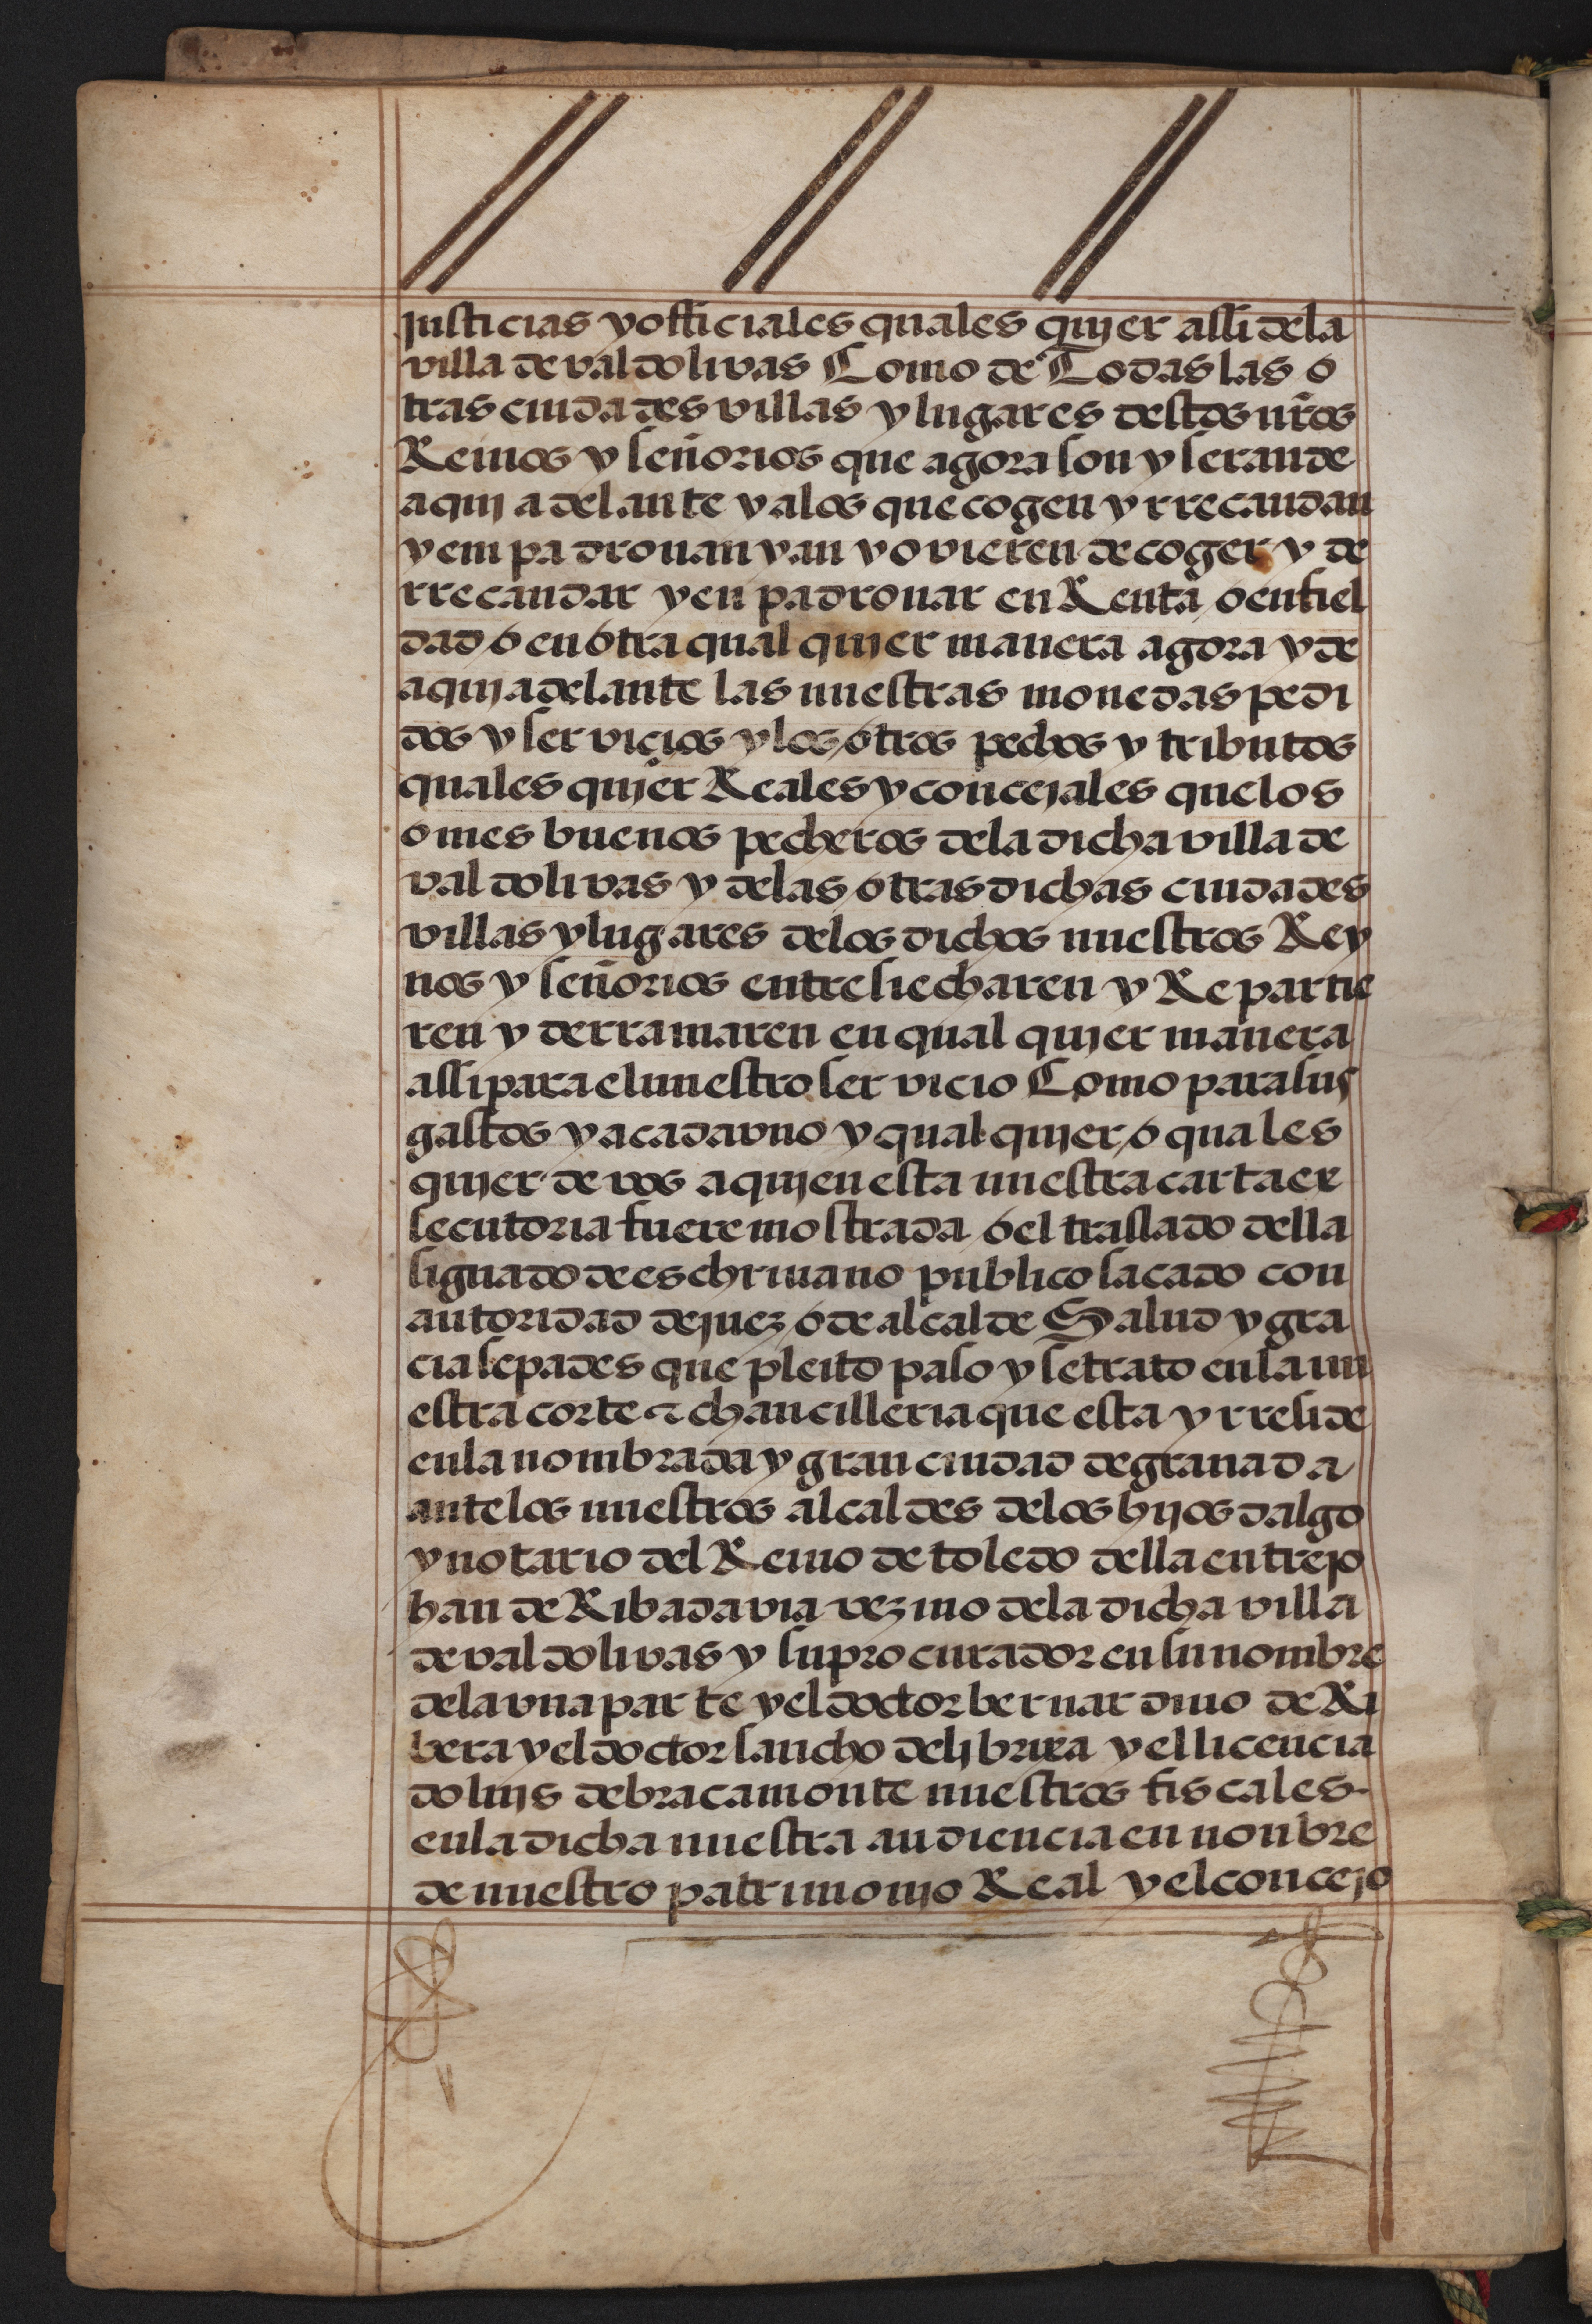 justicias y officiales quales quier assi dela
villa de valdolivas Como de Todas las o
tras ciudades villas y lugares destos nr̃os
Reinos y señorios que agora son y seran de
aqui adelante y alos que cogen y rrecaudan
y empadronan y an y ovieren de coger y de
rrecaudar y en padronar en Renta o en fiel
dad o en otra qual quier manera agora y de
aqui adelante las nuestras monedas pedi
dos y servicios y los otros pechos y tributos
quales quier Reales y concejales que los
omes buenos pecheros dela dicha villa de
valdolivas y delas otras dichas ciudades
villas y lugares delos dichos nuestros Rey
nos y señorios entre si echaren y Repartie
ren y derramaren en qual quier manera
assi para el nuestro servicio Como para sus
gastos y a cada uno y qual quier o quales
quier de vos a quien esta nuestra carta ex
secutoria fuere mostrada o el traslado della
signado de eschrivano publico sacado con
autoridad de juez o de alcalde Salud y gra
cia sepades que pleito paso y se trato en la nu
estra corte & chancilleria que esta y rreside
en la nombrada y gran ciudad de granada
ante los nuestros alcaldes delos hijos dalgo
y notario del Reino de toledo della entre jo
han de Ribadavia vezino dela dicha villa
de valdolivas y su procurador en su nombre
dela una parte y el doctor bernardino de Ri
bera y el doctor sancho de lybrixa y el licencia
do luis de bracamonte nuestros fiscales
en la dicha nuestra audiencia en nonbre
de nuestro patrimonio Real y el concejo